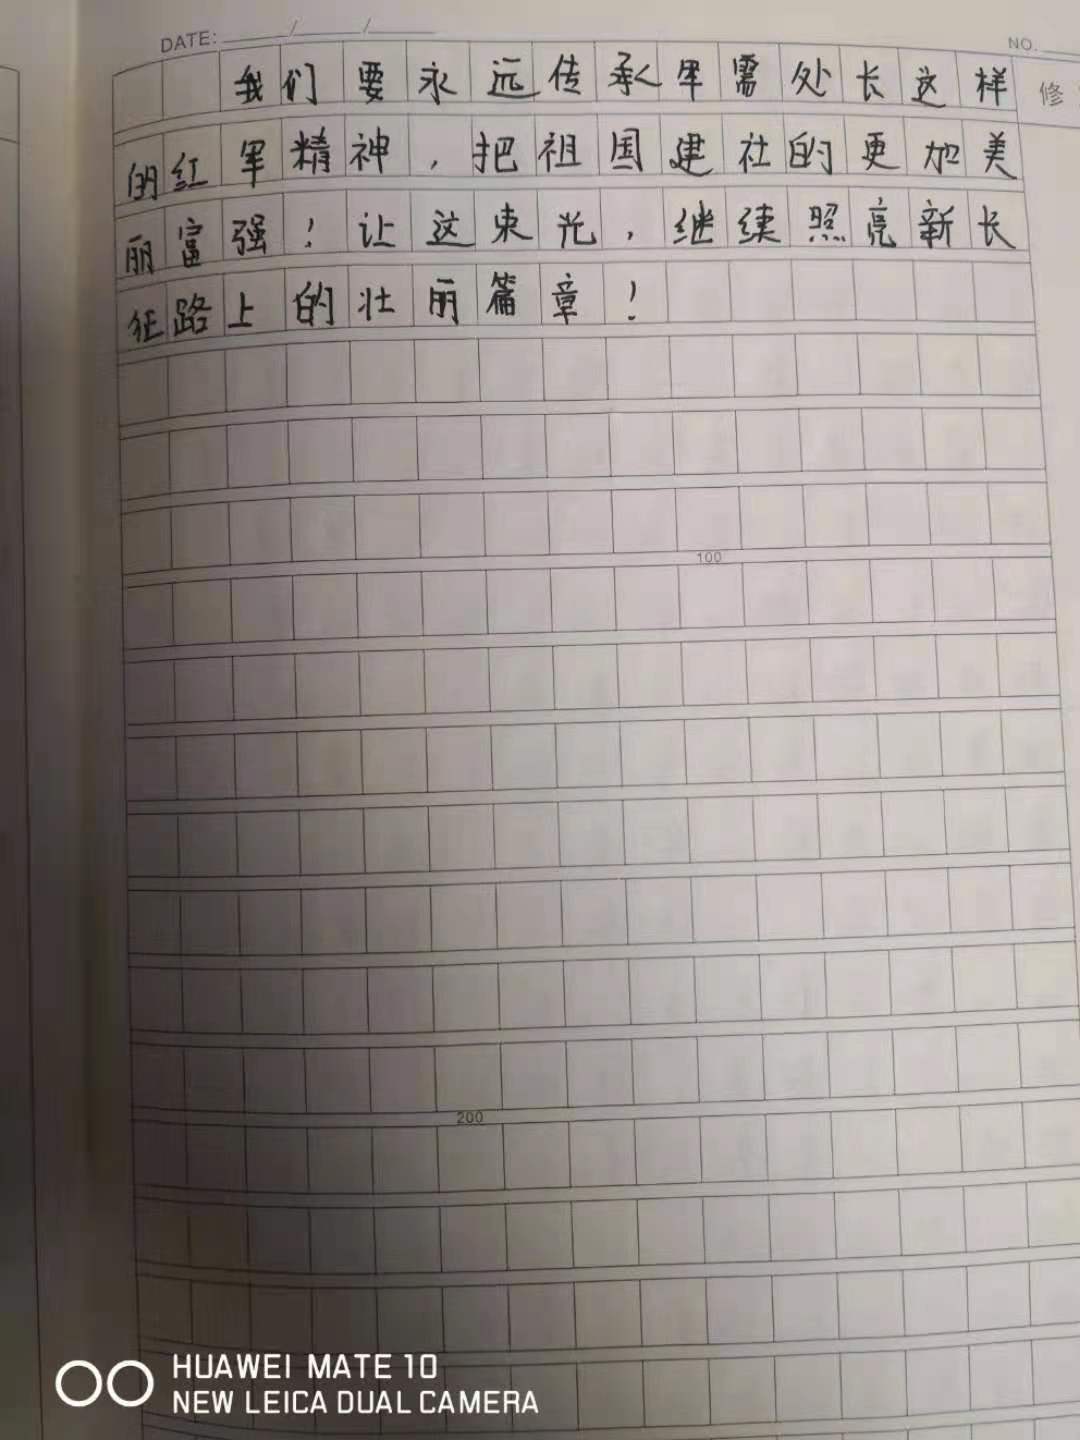 DATE: / /
NO.
我们要永远传承军需处长这样
修
的红军精神，把祖国建社的更加美
丽富强！让这束光，继续照亮新长
征路上的壮丽篇章！
100
200
HUAWEI MATE 10
NEW LEICA DUAL CAMERA